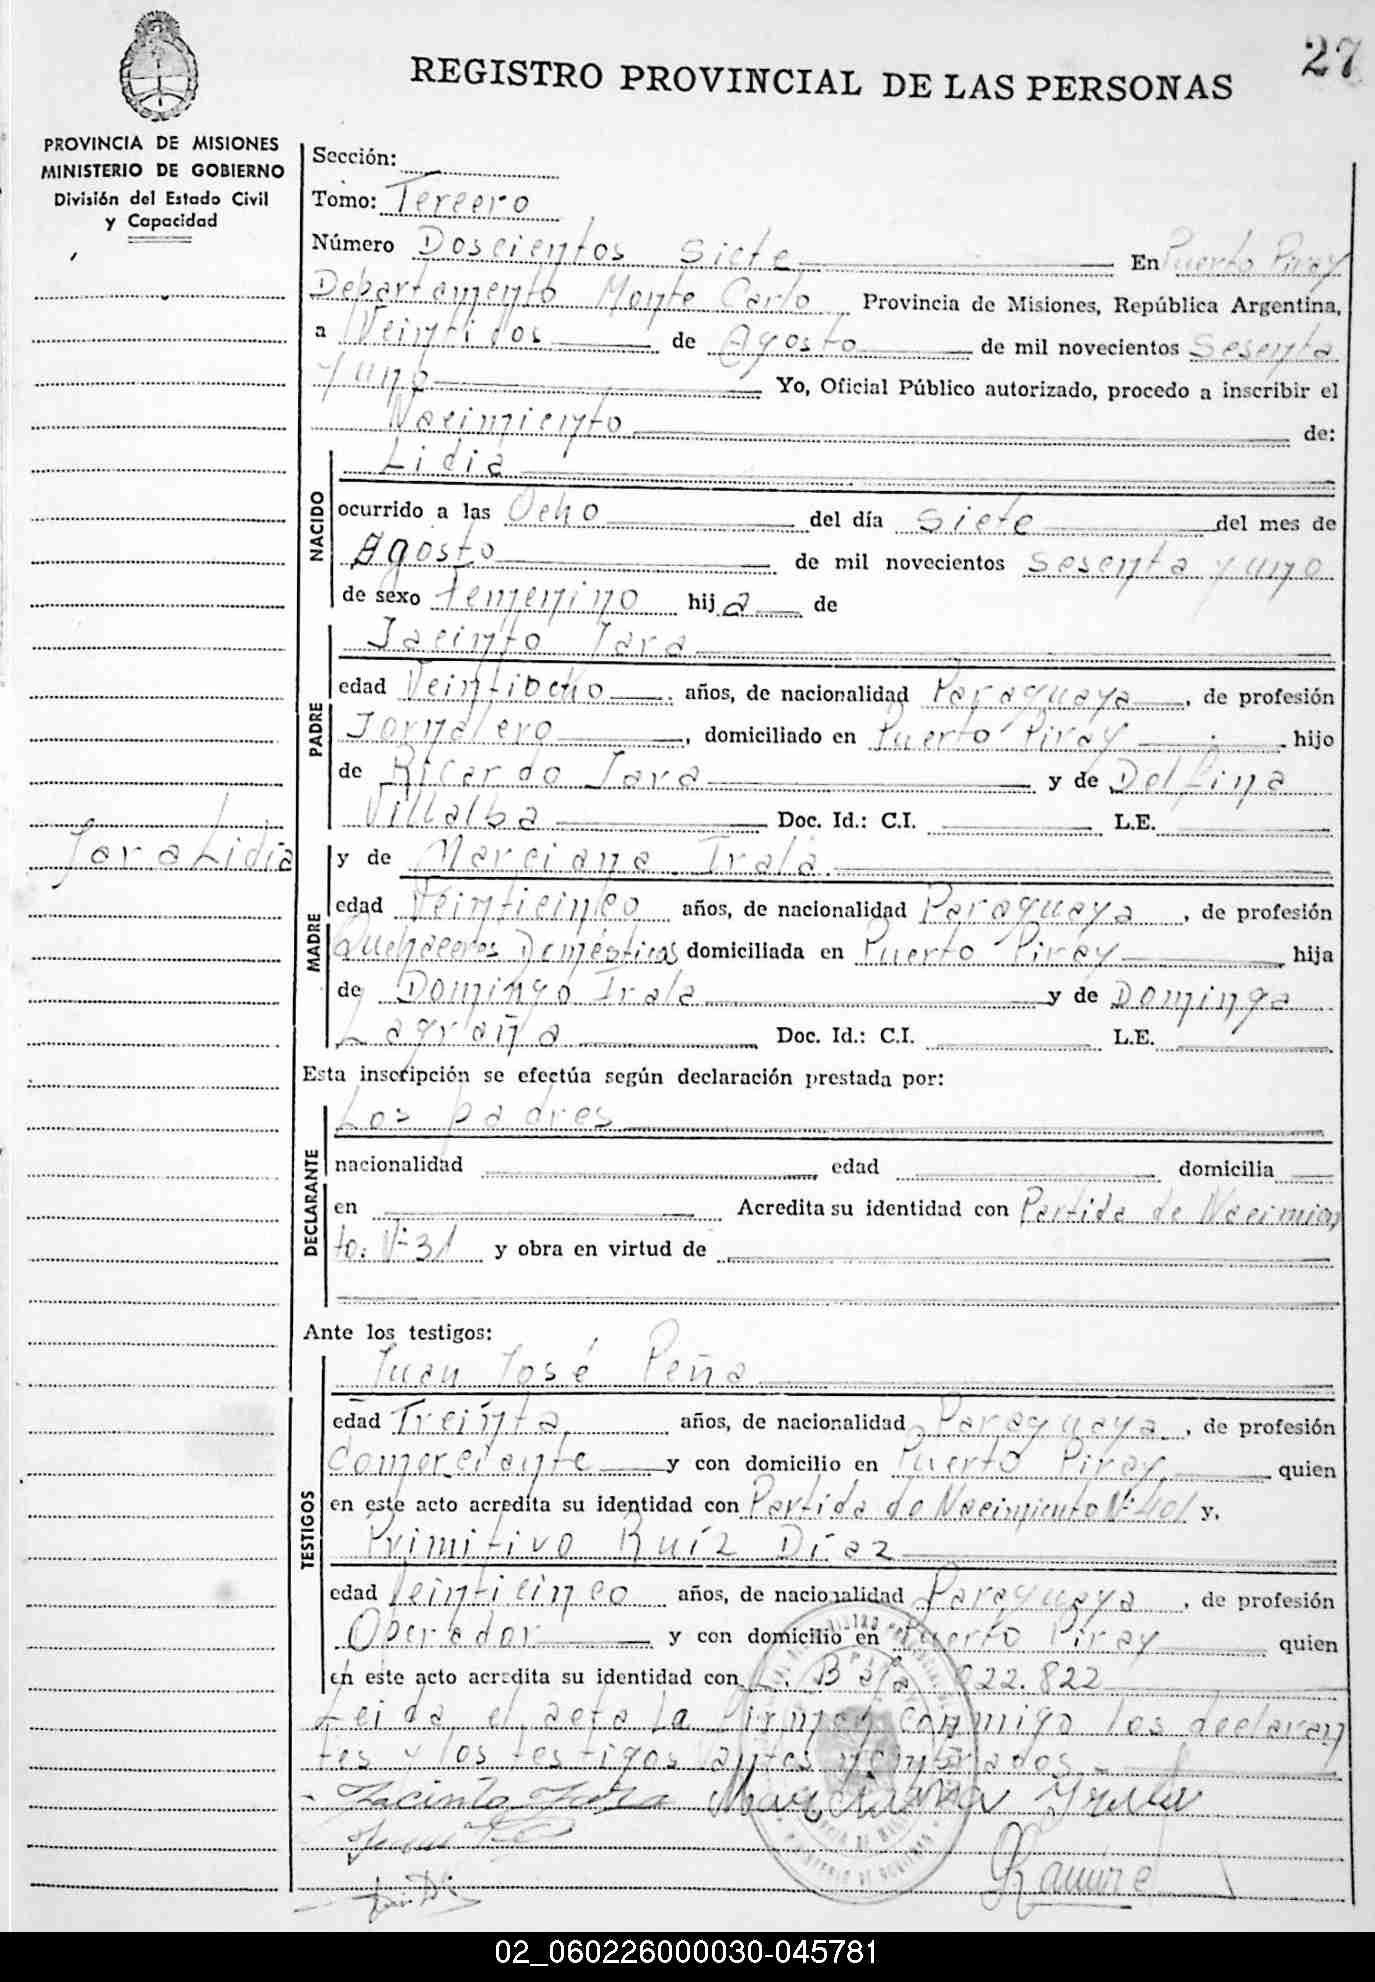 27
REGISTRO PROVINCIAL DE LAS PERSONAS
PROVINCIA DE MISIONES
MINISTERIO DE GOBIERNO
División del Estado Civil
y Capacidad
Sección:
Tomo: Tercero
Número Doscientos siete En Puerto Piray
Departamento Monte Carlo Provincia de Misiones, República Argentina,
a Veintidos de Agosto de mil novecientos Sesenta
y uno Yo, Oficial Público autorizado, procedo a inscribir el
Nacimiento de:
NACIDO
Lidia
ocurrido a las Ocho del día siete del mes de
Agosto de mil novecientos sesenta y uno
de sexo femenino hija de
PADRE
Jacinto Jara
edad Veintiocho años, de nacionalidad Paraguaya, de profesión
Jornalero, domiciliado en Puerto Piray hijo
de Ricardo Jara y de Delfina
Villalba Doc. Id.: C.I. L.E.
Jara Lidia
MADRE
y de Marciana Irala
edad Veinticinco años, de nacionalidad Paraguaya, de profesión
Quehaceres Domésticos domiciliada en Puerto Piray hija
de Domingo Irala y de Dominga
Lagraña Doc. Id.: C.I. L.E.
Esta inscripción se efectúa según declaración prestada por:
DECLARANTE
Los padres
nacionalidad edad domicilia
en Acredita su identidad con Partida de Nacimien
to. Nº 31 y obra en virtud de
Ante los testigos:
TESTIGOS
Juan José Peña
edad Treinta años, de nacionalidad Paraguaya, de profesión
Comerciante y con domicilio en Puerto Piray, quien
en este acto acredita su identidad con Partida de Nacimiento Nº 401 y,
Primitivo Ruíz Díaz
edad Veinticinco años, de nacionalidad Paraguaya, de profesión
Operador y con domicilio en Puerto Piray quien
en este acto acredita su identidad con 822.822
Leida el acta la firman conmigo los declaran
tes y los testigos antes nombrados.-
Jacinto Jara Marciana Irala
02_060226000030-045781